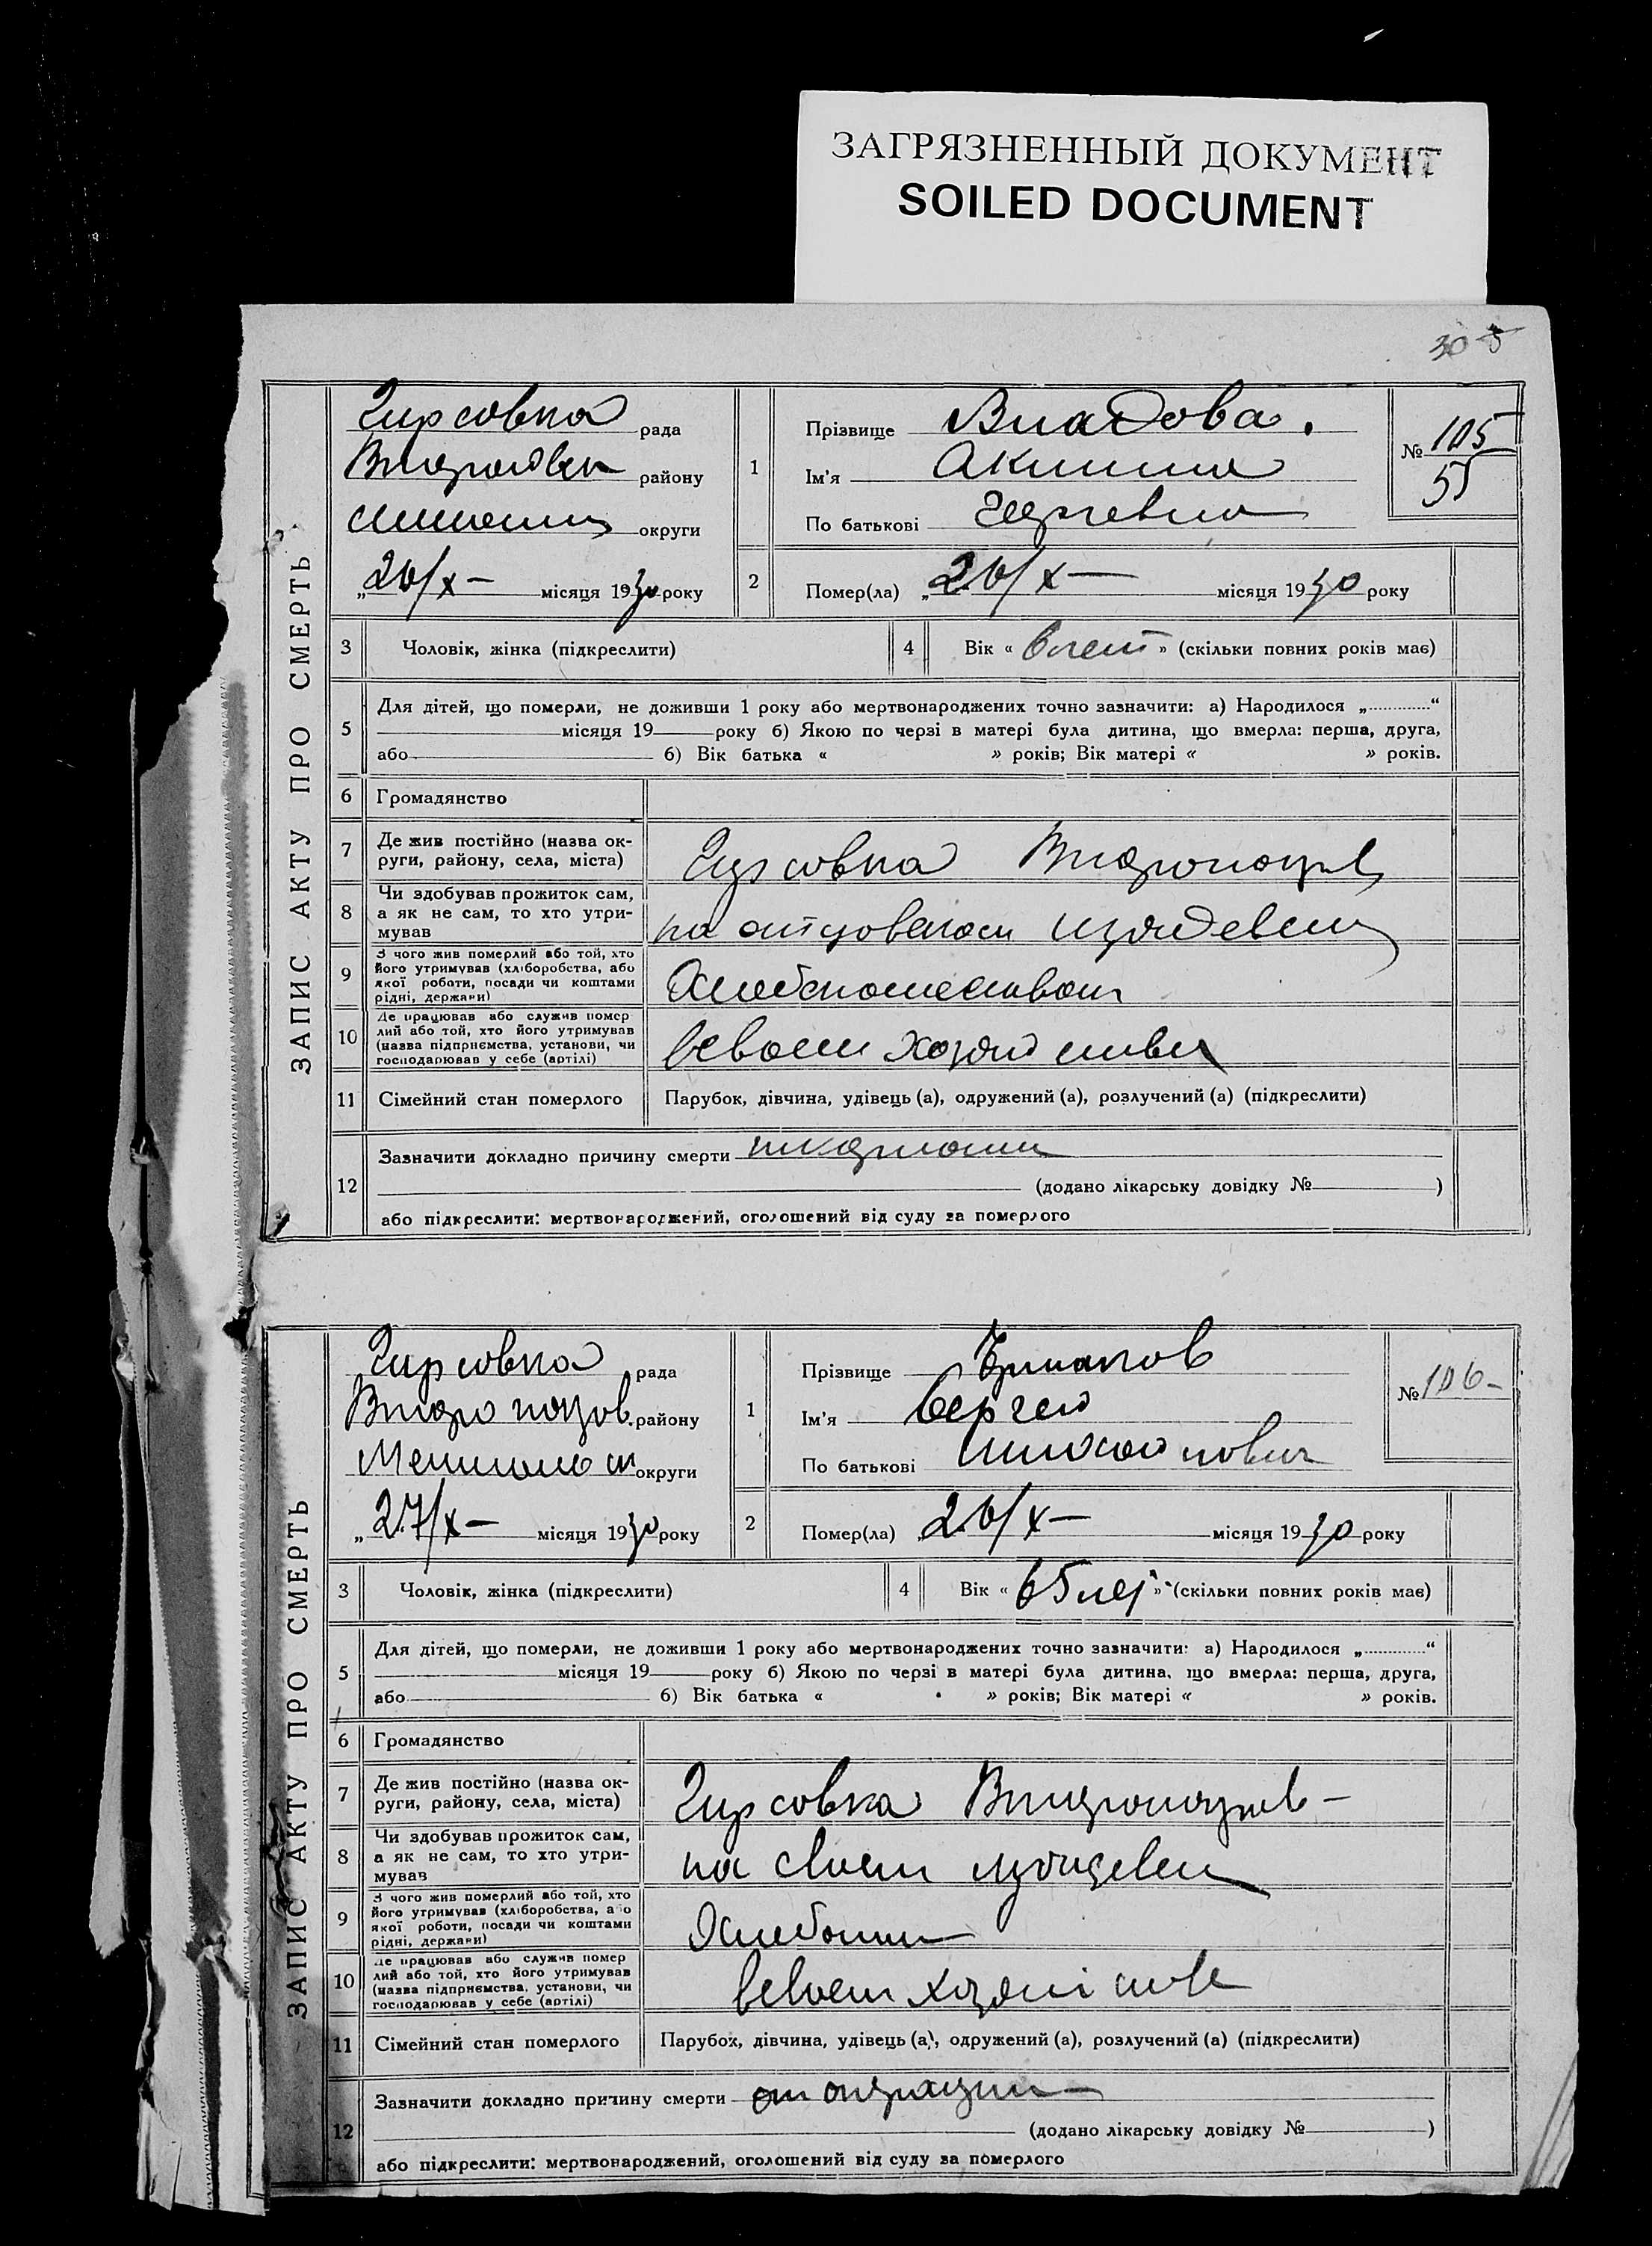 ЗАГРЯЗНЕННЫЙ ДОКУМЕНТ
SOILED DOCUMENT
305
ЗАПИС АКТУ ПРО СМЕРТЬ
Гирсовка рада
району
округи
„26/X — місяця 1930 року
1
Прізвище Владова.
Ім'я Акилина
По батькові Георгевна
№ 105
55
2
Помер(ла) „26/X — місяця 1930 року
3 Чоловік, жінка (підкреслити)
4 Вік « 6 лет » (скільки повних років має)
5
Для дітей, що померли, не доживши 1 року або мертвонароджених точно зазначити: а) Народилося „............“
місяця 19 року б) Якою по черзі в матері була дитина, що вмерла: перша, друга,
або б) Вік батька « » років; Вік матері « » років.
6 Громадянство
7
Де жив постійно (назва ок-
руги, району, села, міста)
Гирсовка
8
Чи здобував прожиток сам,
а як не сам, то хто утри-
мував
на отцовском иждевении
9
З чого жив померлий або той, хто
його утримував (хліборобства, або
якої роботи, посади чи коштами
рідні, держави)
10
Де працював або служив помер
лий або той, хто його утримував
(назва підприємства, установи, чи
господарював у себе (артілі)
всвоем хозяйстве
11 Сімейний стан померлого Парубок, дівчина, удівець (а), одружений (а), розлучений (а) (підкреслити)
12
Зазначити докладно причину смерти
(додано лікарську довідку № )
або підкреслити: мертвонароджений, оголошений від суду за померлого
ЗАПИС АКТУ ПРО СМЕРТЬ
Гирсовка рада
Второпазов. району
Мелитопол округи
„27/X — місяця 1930 року
1
Прізвище
Ім'я Сергей
По батькові
№ 106 -
2
Помер(ла) 26/X — місяця 1930 року
3 Чоловік, жінка (підкреслити)
4 Вік « 65 лет » (скільки повних років має)
5
Для дітей, що померли, не доживши 1 року або мертвонароджених точно зазначити: а) Народилося „............“
місяця 19 року б) Якою по черзі в матері була дитина, що вмерла: перша, друга,
або б) Вік батька « » років; Вік матері « » років.
6 Громадянство
7
Де жив постійно (назва ок-
руги, району, села, міста)
Гирсовка
8
Чи здобував прожиток сам,
а як не сам, то хто утри-
мував
на своем иждевен
9
З чого жив померлий або той, хто
його утримував (хліборобства, або
якої роботи, посади чи коштами
рідні, держави)
10
Де працював або служив помер
лий або той, хто його утримував
(назва підприємства, установи, чи
господарював у себе (артілі)
всвоем хозяйстве
11 Сімейний стан померлого Парубок, дівчина, удівець (а), одружений (а), розлучений (а) (підкреслити)
12
Зазначити докладно причину смерти от операции
(додано лікарську довідку № )
або підкреслити: мертвонароджений, оголошений від суду за померлого